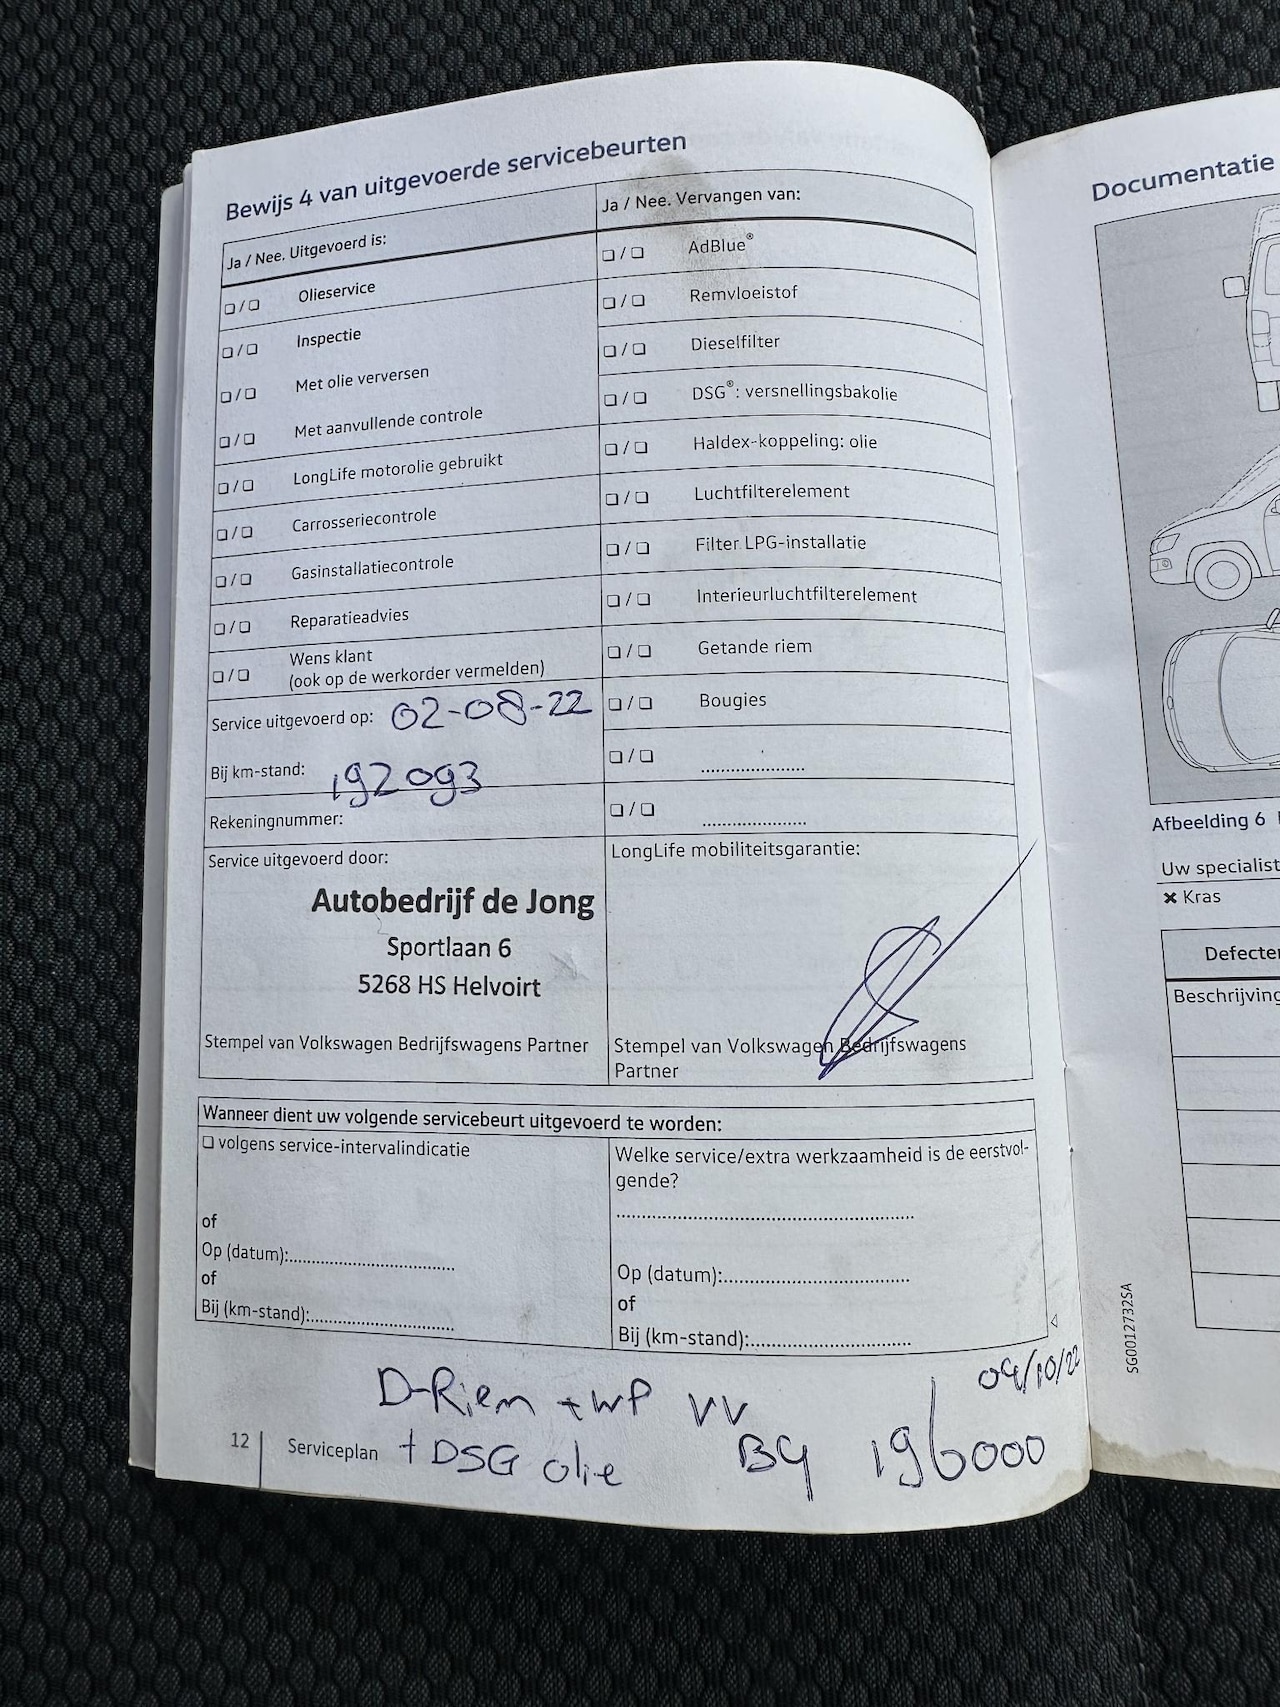 Bewijs 4 van uitgevoerde servicebeurten
Ja / Nee. Uitgevoerd is:
❏ / ❏ Olieservice
❏ / ❏ Inspectie
❏ / ❏ Met olie verversen
❏ / ❏ Met aanvullende controle
❏ / ❏ LongLife motorolie gebruikt
❏ / ❏ Carrosseriecontrole
❏ / ❏ Gasinstallatiecontrole
❏ / ❏ Reparatieadvies
❏ / ❏ Wens klant
(ook op de werkorder vermelden)
Service uitgevoerd op: 02-08-22
Bij km-stand: 192093
Rekeningnummer:
Ja / Nee. Vervangen van:
❏ / ❏ AdBlue®
❏ / ❏ Remvloeistof
❏ / ❏ Dieselfilter
❏ / ❏ DSG®: versnellingsbakolie
❏ / ❏ Haldex-koppeling: olie
❏ / ❏ Luchtfilterelement
❏ / ❏ Filter LPG-installatie
❏ / ❏ Interieurluchtfilterelement
❏ / ❏ Getande riem
❏ / ❏ Bougies
❏ / ❏ ....................
❏ / ❏ ....................
Service uitgevoerd door:
Autobedrijf de Jong
Sportlaan 6
5268 HS Helvoirt
Stempel van Volkswagen Bedrijfswagens Partner
LongLife mobiliteitsgarantie:
Stempel van Volkswagen Bedrijfswagens
Partner
Wanneer dient uw volgende servicebeurt uitgevoerd te worden:
❏ volgens service-intervalindicatie
of
Op (datum):................................
of
Bij (km-stand):............................
Welke service/extra werkzaamheid is de eerstvol-
gende?
..........................................................
Op (datum):....................................
of
Bij (km-stand):...............................
04/10/22
D-Riem + WP VV
+ DSG olie Bij 196000
12 Serviceplan
Documentatie
Afbeelding 6
Uw specialist
✖ Kras
Defecte
Beschrijving
SG0012732SA